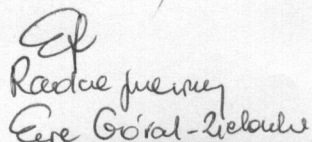 Radca prawny
Ewa Góral-Zielonka